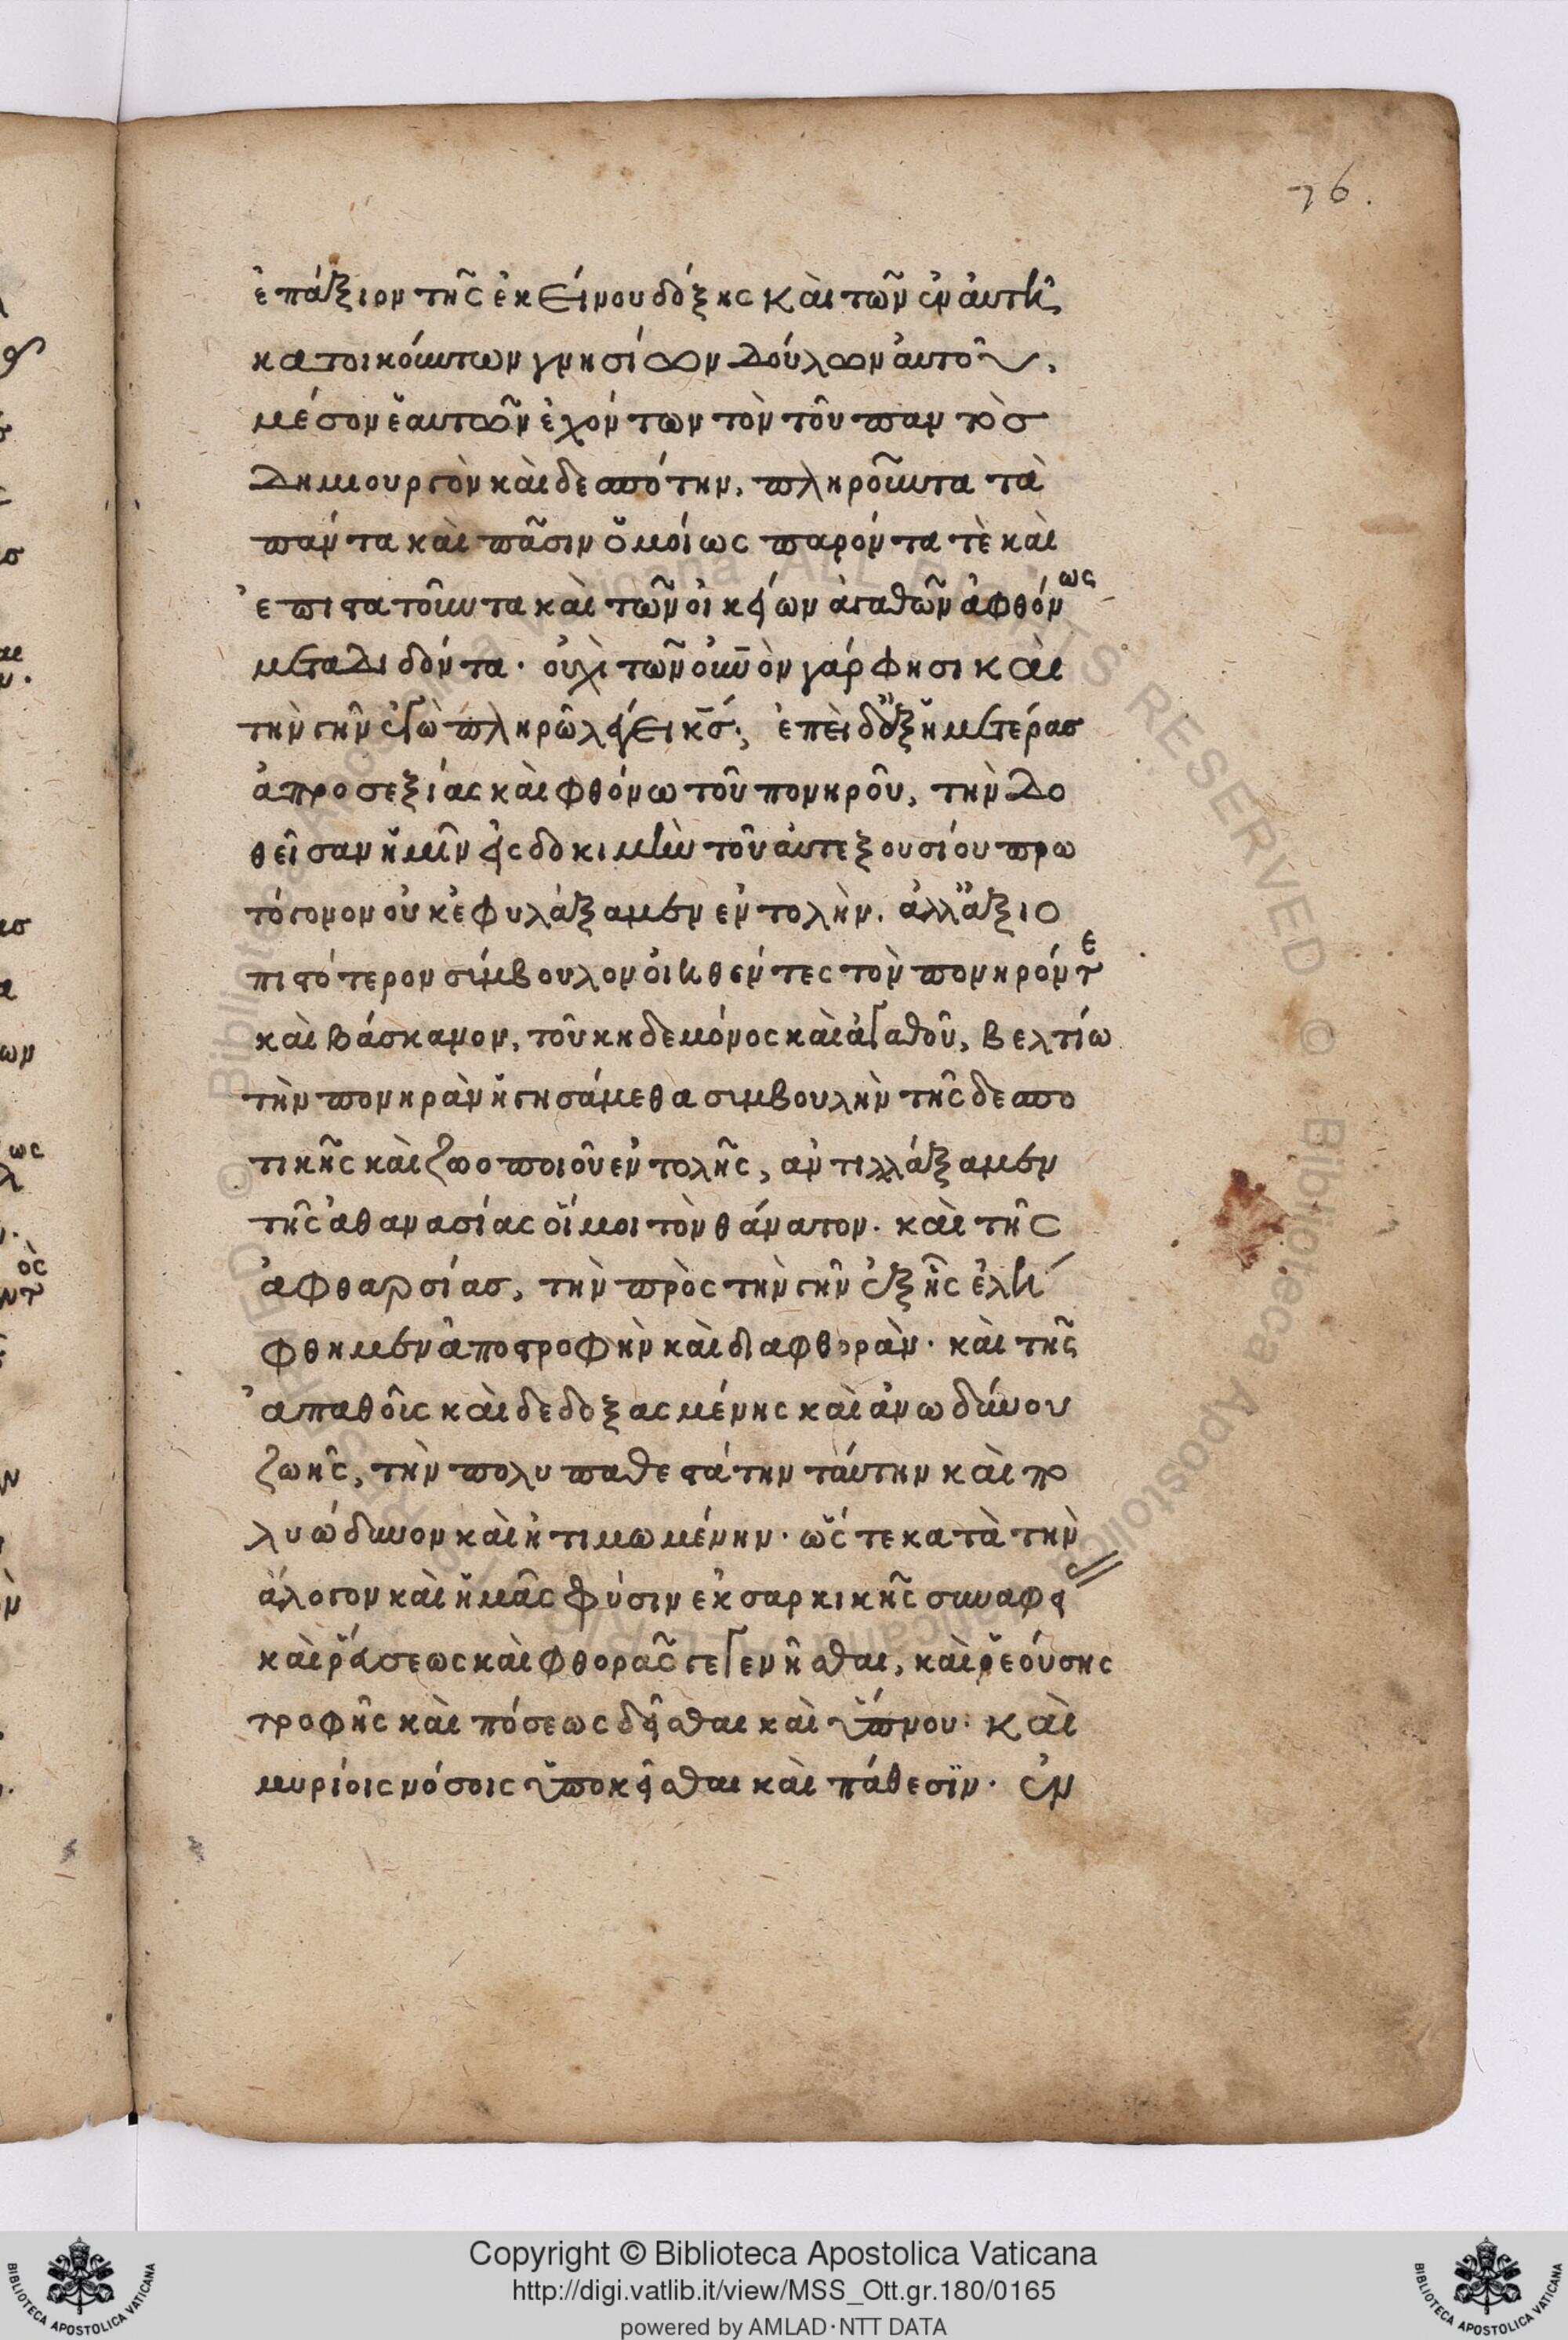 76.
ἐπάξιον τῆς ἐκείνου δόξης καὶ τῶν ἐν ἀυτῆ
κατοικούντων γνησίων δούλων ἀυτοῦ,
μέσον ἑαυτῶν ἐχόντων τὸν τοῦ παντὸς
δημιουργὸν καὶ δεσπότην, πληροῦντα τὰ
πάντα καὶ πᾶσιν ὁμοίως παρόντα τὲ καὶ
ἐπιστατοῦντα καὶ τῶν οἰκείων ἀγαθῶν ἀφθόνως
μεταδιδόντα· οὐχὶ τῶν οὐνὸν γάρ φησι καὶ
τὴν γῆν ἐγὼ πληρῶ λέγει κς; ἐπεὶ δ' ἐξ ἡμετέρας
ἀπροσεξίας καὶ φθόνω τοῦ πονηροῦ, τὴν δο
θεῖσαν ἡμῖν εἰς δοκιμὴν τοῦ ἀυτεξουσίου πρω
τόγονον οὐκ ἐφυλάξαμεν ἐντολὴν. ἀλλ' ἀξιο
πιστότερον σύμβουλον οἰηθέντες τὸν πονηρόν τε
καὶ βάσκανον, τοῦ κηδεμόνος καὶ ἀγαθοῦ, βελτίω
τὴν πονηρὰν ἡγησάμεθα συμβουλὴν τῆς δεσπο
τικῆς καὶ ζωοποιοῦ ἐντολῆς, ἀντιλλάξαμεν
τῆς ἀθανασίας οἴμοι τὸν θάνατον. καὶ τῆς
ἀφθαρσίας, τὴν πρὸς τὴν γῆν ἐξ ἧς ἐλή
φθημεν ἀποστροφὴν καὶ διαφθορὰν· καὶ τῆς
ἀπαθοῦς καὶ δεδοξασμένης καὶ ἀνωδύνου
ζωῆς, τὴν πολυπαθεστάτην ταύτην καὶ πο
λυώδυνον καὶ ἠτιμωμένην· ὥς τε κατὰ τὴν
ἄλογον καὶ ἡμᾶς φύσιν ἐκ σαρκικῆς συναφεί
καὶ ῥύσεως καὶ φθορᾶς γεγενῆσθαι, καὶ ῥεούσης
τροφῆς καὶ πόσεως δεῖσθαι καὶ ὕπνου· καὶ
μυρίοις νόσοις ὑποκεῖσθαι καὶ πάθεσϊν· ἐν
Copyright © Biblioteca Apostolica Vaticana
http://digi.vatlib.it/view/MSS_Ott.gr.180/0165
powered by AMLAD·NTT DATA